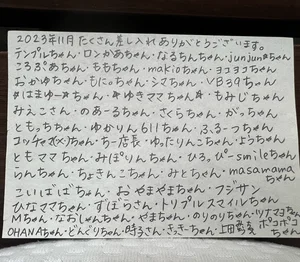 2023年11月 たくさん差し入れありがとうございます。
テンプルちゃん・ロンかあちゃん・なるちんちゃん・junjunaちゃん
ころぷあちゃん・ももちゃん・makioちゃん・ヨコヨコちゃん
おかゆちゃん・もにっちゃん・シマちゃん・VB39ちゃん
#はまゆー#ちゃん・#ゆきママちゃん・もみじちゃん
みえこさん・のあーるちゃん・さくらちゃん・がっちゃん
ともっちちゃん・ゆかりん611ちゃん・ふるーつちゃん
コッチャちゃん・ちー店長・ゆったりんこちゃん・ようちゃん
ともママちゃん・みぽりんちゃん・ひろっぴーsmileちゃん
らんちゃん・ちょきんこちゃん・みとちゃん・masamama
ちゃん
こいばばちゃん・おやまやまちゃん・フジサン
ひなママちゃん・ずぼらさん・トリプルスマイルちゃん
Mちゃん・なおしゃんちゃん・やまちゃん・のりのりちゃん・ツナマヨちゃん
OHANAちゃん・どんぐりちゃん・時子さん・きっきーちゃん・上田
ポコポコ
ちゃん